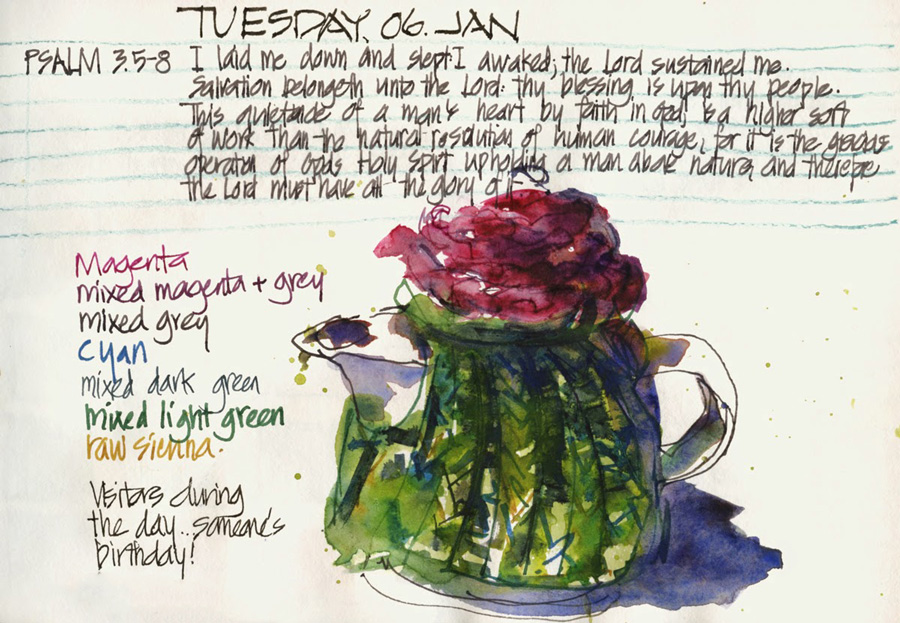 TUESDAY, 06. JAN
PSALM 3.5-8 I laid me down and slept: I awaked; the Lord sustained me.
Salvation belongeth unto the Lord: thy blessing is upon thy people.
This quietude of a man's heart by faith in God, is a higher sort
of work than the natural resolution of human courage, for it is the gracious
operation of Gods Holy Spirit upholding a man above nature, and therefore
the Lord must have all the glory of it
Magenta
mixed magenta + grey
mixed grey
cyan
mixed dark green
mixed light green
raw sienna.
Visitors during
the day... someone's
birthday!